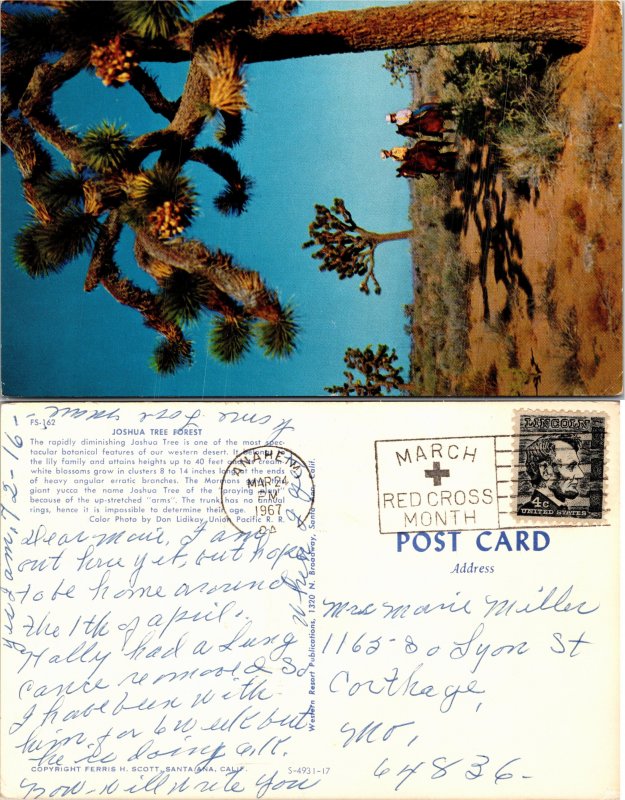 FS-162
JOSHUA TREE FOREST
The rapidly diminishing Joshua Tree is one of the most spec-
tacular botanical features of our western desert. It belongs
the lily family and attains heights up to 40 feet and
white blossoms grow in clusters 8 to 14 inches long at the ends
of heavy angular erratic branches. The Mormons
giant yucca the name Joshua Tree or the praying
because of the up-stretched "arms". The trunks has no annual
rings, hence it is impossible to determine their age.
Color Photo by Don Lidikay, Union Pacific R. R.
Dear Marie, I am
out here yet, but hope
to be home around
the 1th of april.
Wally had a Lung
cance removed & So
I have been with
him for 6 week but
he is doing all.
Now will write you
when I get
home. Love
COPYRIGHT FERRIS H. SCOTT, SANTA ANA, CALIF.
S-4931-17
Western Resort Publications, 1320 N. Broadway, Santa Ana, Calif.
ANAHEIM
MAR 24
PM
1967
CA
MARCH
RED CROSS
MONTH
LINCOLN
4c
UNITED STATES
POST CARD
Address
Mrs Marie Miller
1165 So Lyon St
Carthage,
Mo,
64836-